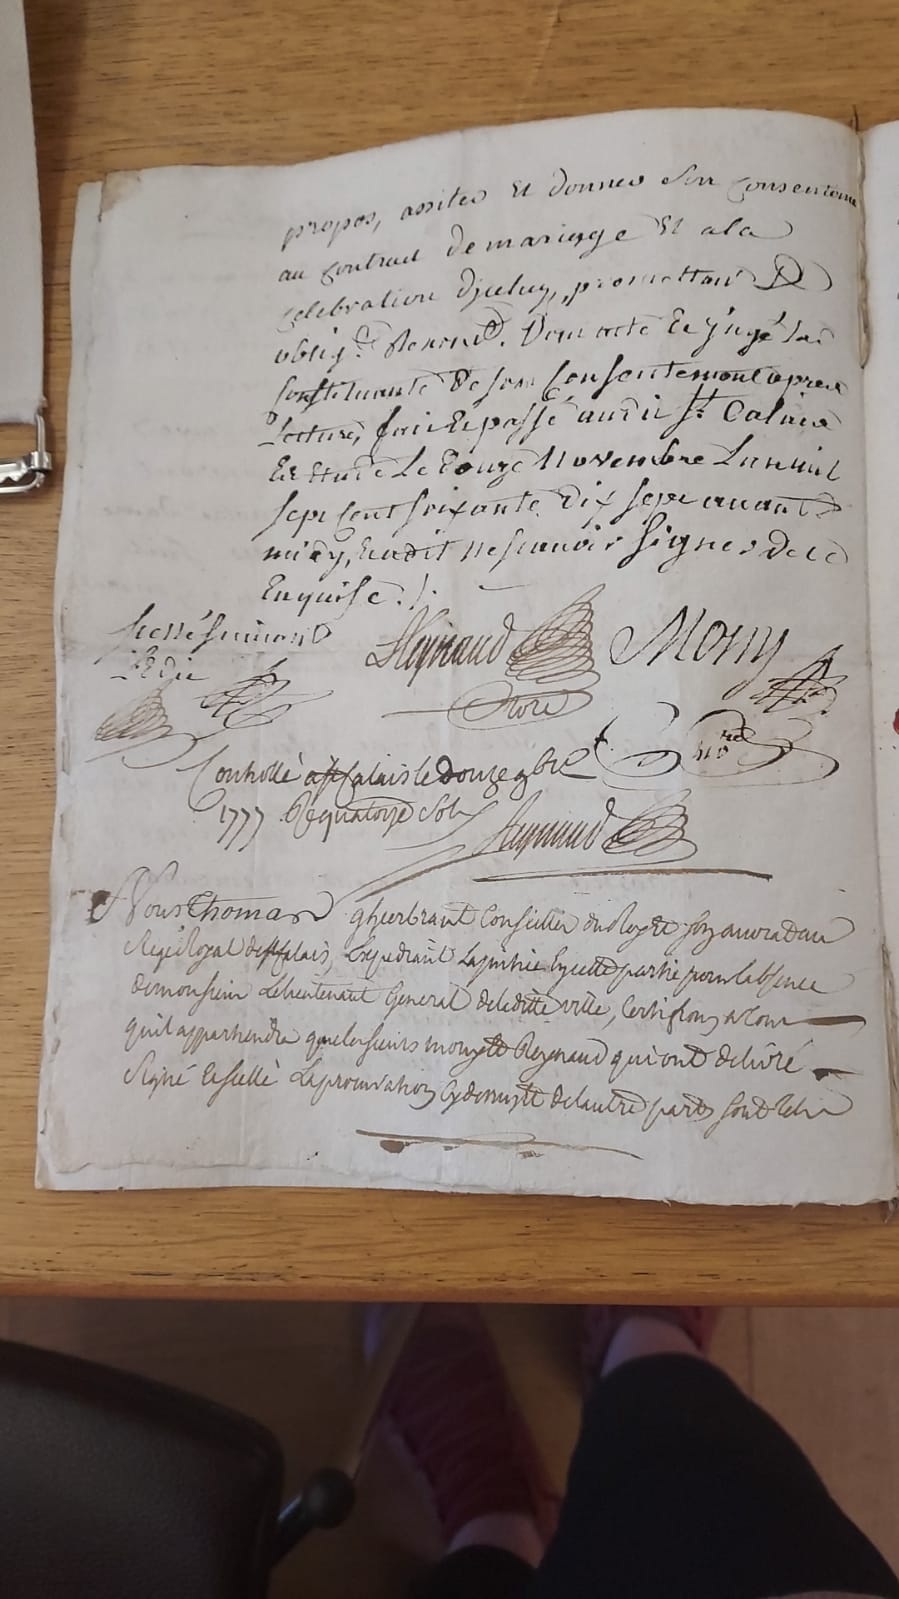 propos, assiter et donner son consenteme
au contract de mariage et a la
celebration d'jceluy, promettant &
oblig.t Renonc.t. Dont acte
constituante de son consentement apres
lecture, fait et passé audit St. Calais
en Etude le douze Novembre l'an mil
sept cent soixante dix sept avant
midy, Et a dit ne sçavoir signer de ce
Enquise ./.
Reynaud Mony
Nore
Controllé a St Calais le douze 9bre
1777 Rç quatorze sols
Reynaud
Nous Thomas Gheerbrant Conseiller du Roy et son avocat au
Siege Royal de Calais, Expediant la presente en cette partie pour l'absence
de monsieur le lieutenant General de la ditte ville, Certifions a tous
qu'il appartiendra que les sieurs mony et Reynaud qui ont delivré
Signé et scellé la procuration cy dessus et de l'autre part sont tels